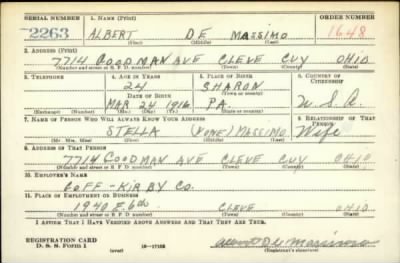 SERIAL NUMBER 1. NAME (Print) ORDER NUMBER
2263 ALBERT DE MASSIMO 1648
(First) (Middle) (Last)
2. ADDRESS (Print)
7714 GOODMAN AVE CLEVE CUY OHIO
(Number and street or R. F. D. number) (Town) (County) (State)
3. TELEPHONE 4. AGE IN YEARS 5. PLACE OF BIRTH 6. COUNTRY OF CITIZENSHIP
24 SHARON
DATE OF BIRTH (Town or county)
MAR 24 1916 PA. U.S.A.
(Exchange) (Number) (Mo.) (Day) (Yr.) (State or country)
7. NAME OF PERSON WHO WILL ALWAYS KNOW YOUR ADDRESS 8. RELATIONSHIP OF THAT PERSON
STELLA (NONE) MASSIMO Wife
(Mr., Mrs., Miss) (First) (Middle) (Last)
9. ADDRESS OF THAT PERSON
7714 GOODMAN AVE CLEVE CUY OHIO
(Number and street or R. F. D. number) (Town) (County) (State)
10. EMPLOYER'S NAME
GOFF-KIRBY CO.
11. PLACE OF EMPLOYMENT OR BUSINESS
1940 E. 6th CLEVE OHIO
(Number and street or R. F. D. number) (Town) (County) (State)
I AFFIRM THAT I HAVE VERIFIED ABOVE ANSWERS AND THAT THEY ARE TRUE.
REGISTRATION CARD
D. S. S. Form 1 (over) 16-17105 Albert De Massimo
(Registrant's signature)